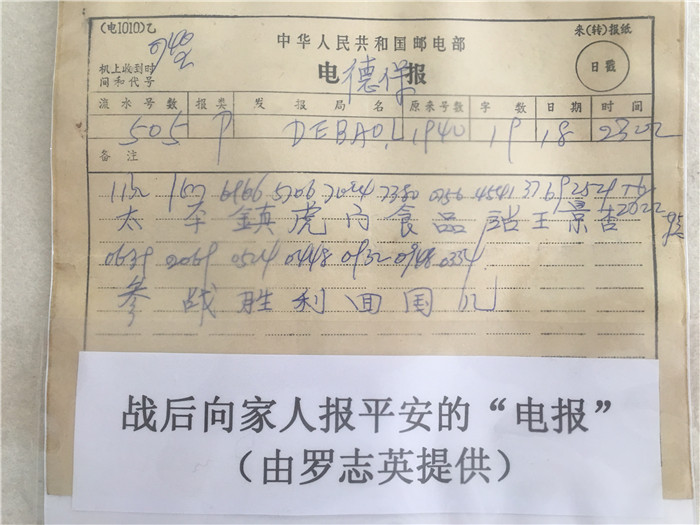 (电1010)乙
中华人民共和国邮电部
来(转)报纸
机上收到时
间和代号
电 报
日戳
流水号数 报类 发报局名 原来号数 字数 日期 时间
505 P DEBAO 1940 19 18 2322
备注
太 平 镇 虎 门 食 品 站 王 景 杏
0639 2069 0524 0448 0932 0948 0334
参 战 胜 利 回 国 心
战后向家人报平安的“电报”
(由罗志英提供)